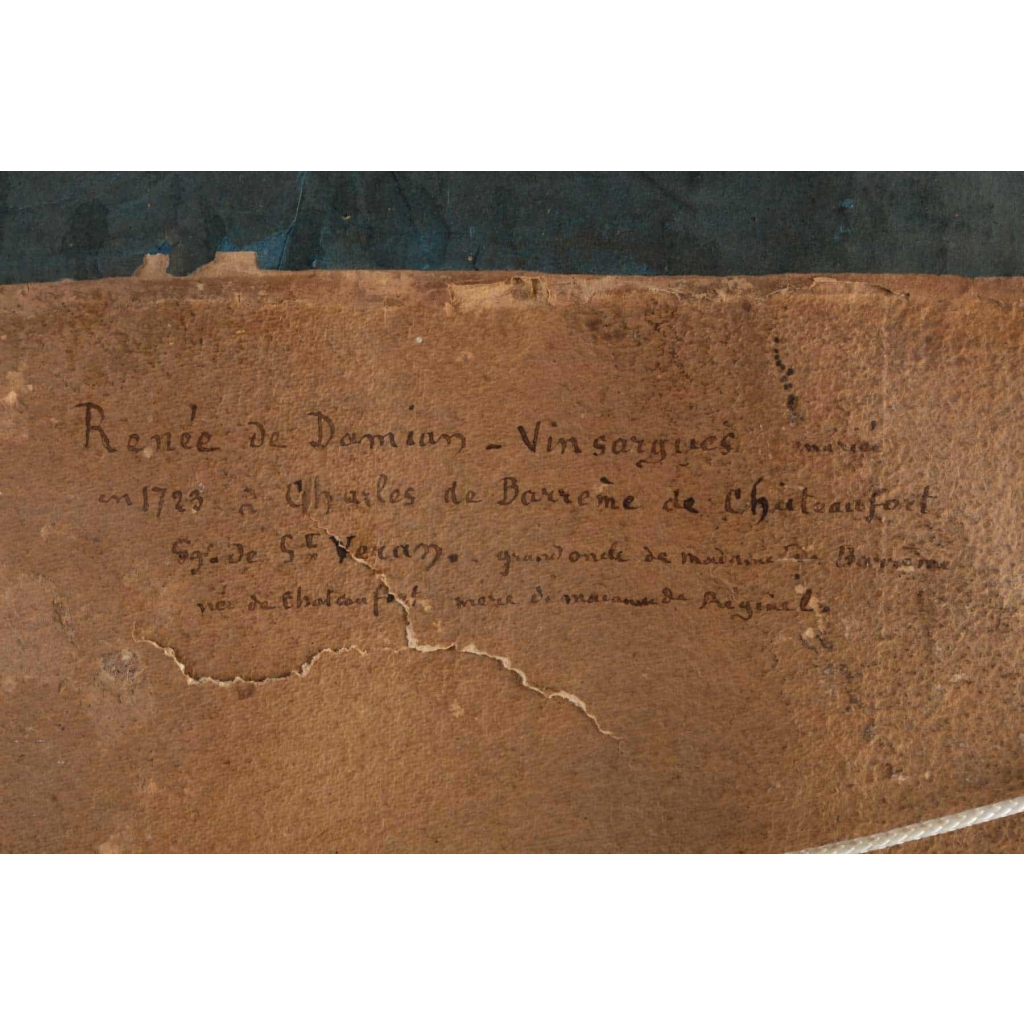 Renée de Damian - Vinsargues mariée
en 1723 à Charles de Barrême de Châteaufort
Sgr. de St Veran. grand oncle de madame Barrême
née de Chateaufort mère de madame de Réginel.